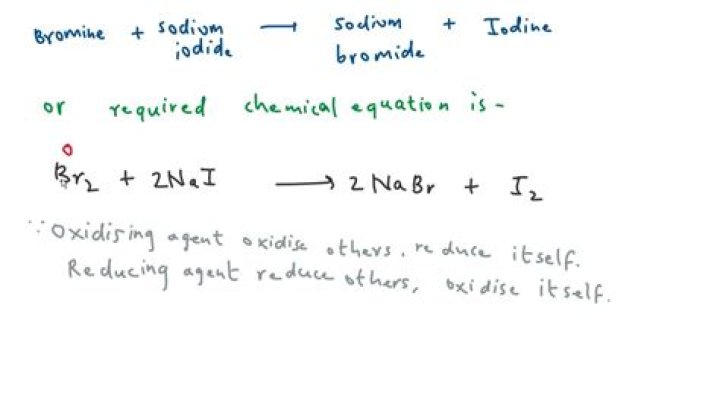 Bromine + sodium iodide → sodium bromide + Iodine
or required chemical equation is -
0
Br₂ + 2NaI → 2 NaBr + I₂
∵ Oxidising agent oxidise others, reduce itself.
Reducing agent reduce others, oxidise itself.